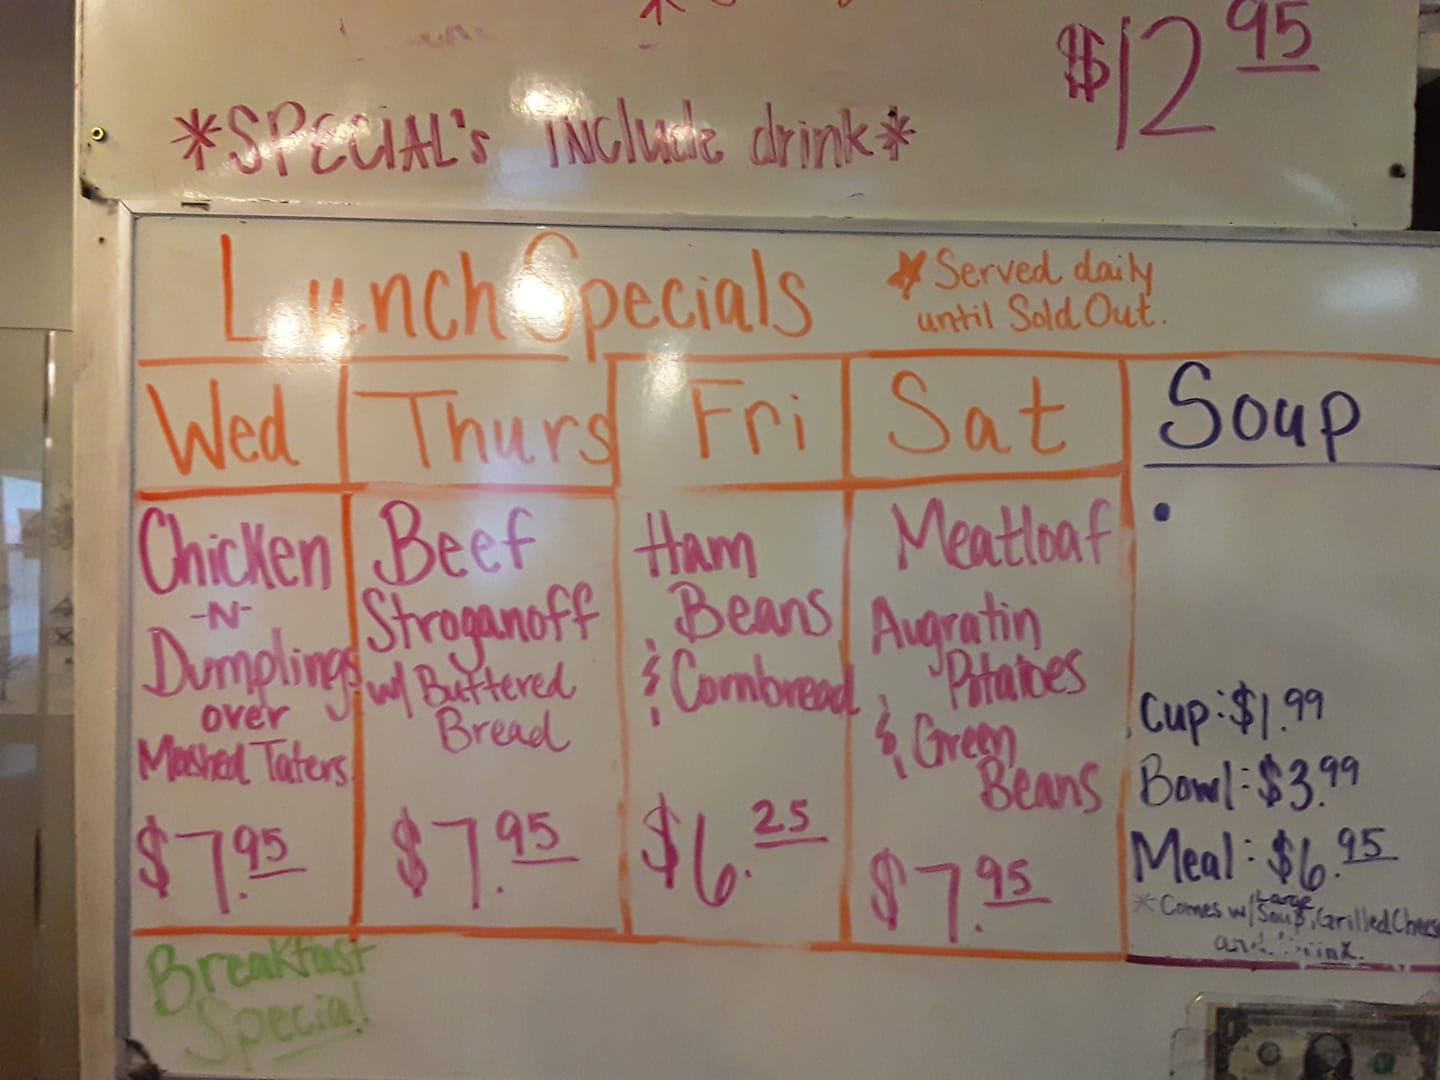 $12 95
*SPECIAL's INClude drink*
Lunch Specials
* Served daily
until Sold Out.
Wed
Thurs
Fri
Sat
Soup
Chicken
-N-
Dumplings
over
Mashed Taters.
$7.95
Beef
Stroganoff
w/ Buttered
Bread
$7.95
Ham
Beans
& Cornbread
$6.25
Meatloaf
Augratin
Potatoes
& Green
Beans
$7.95
•
Cup: $1.99
Bowl: $3.99
Meal: $6.95
* Comes w/ Large Soup, Grilled Chees
and
Breakfast
Special